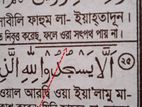 সাবীলি ফাহুম লা- ইয়াহতাদূন।
ত নিবৃত্ত করেছে, ফলে ওরা সৎপথ পায় না।
اَلَّا يَسْجُدُوْا لِلّٰهِ الَّذِ
২৫
ওয়াল আরদ্বি ওয়া ইয়া'লামু মা-